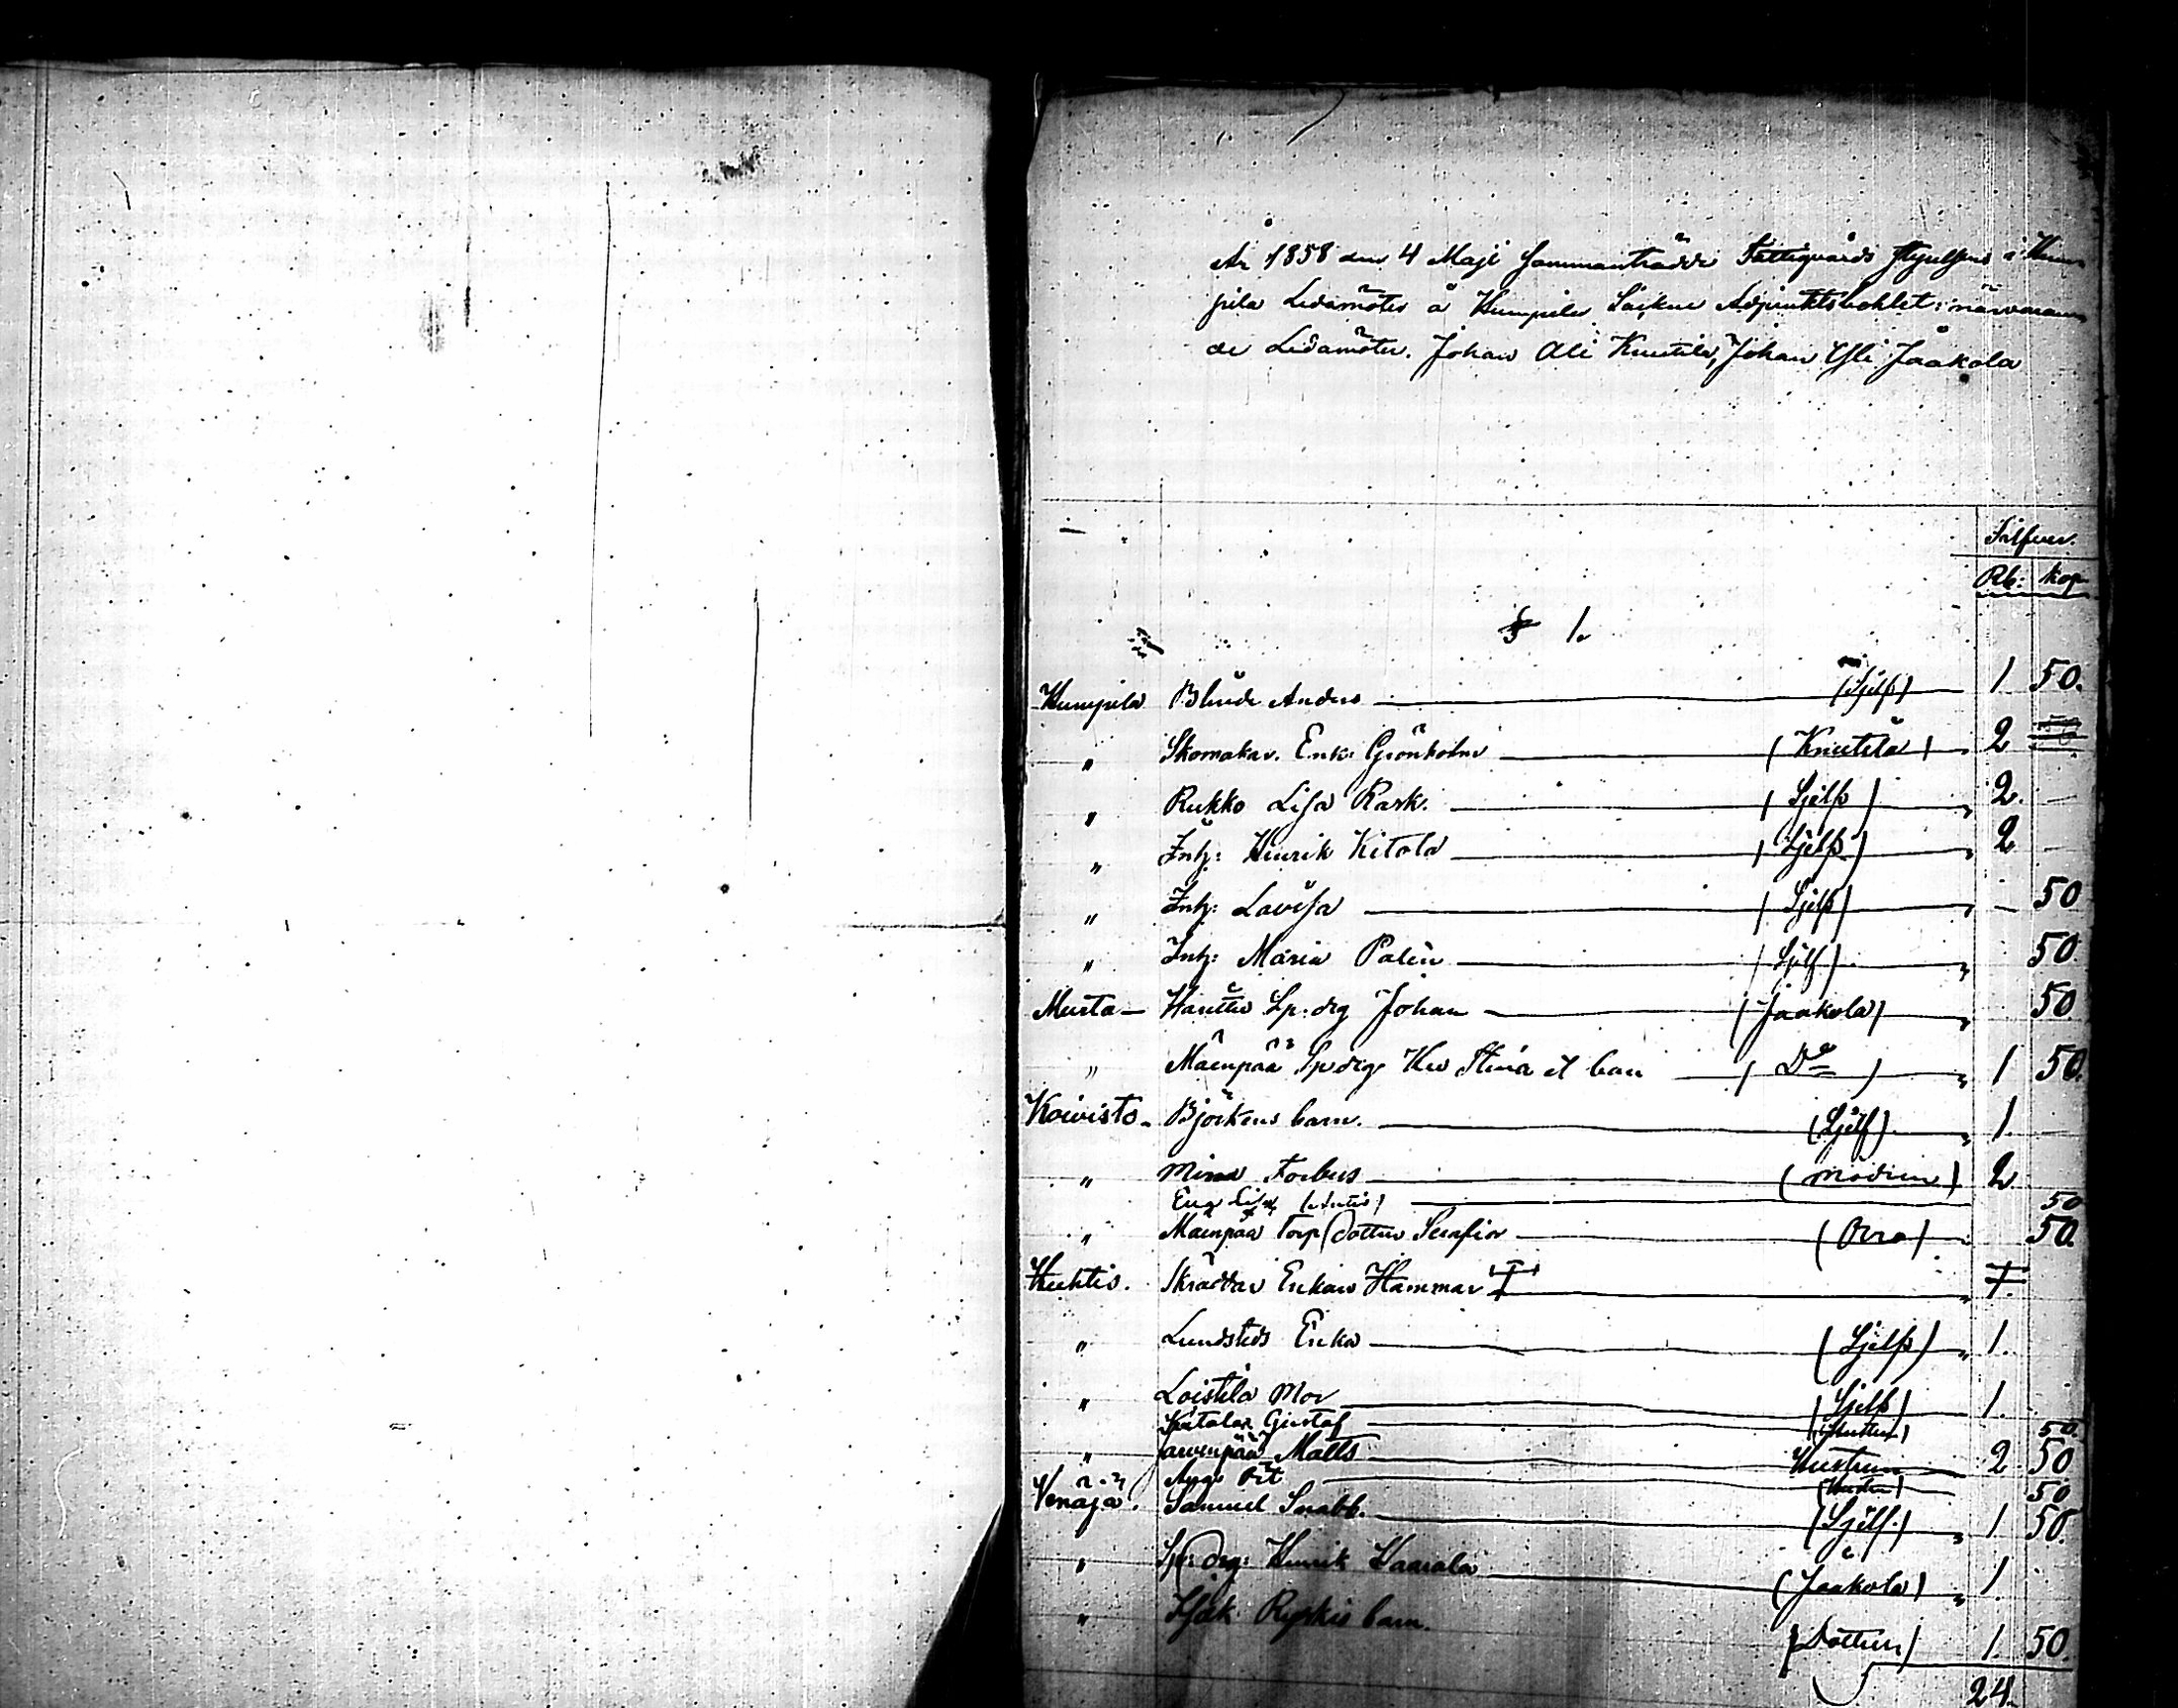 År 1858 den 4 Maji Sammanträdde Fattigvårds Styrelsens i Hum-
pila Ledamöter å Humpila Sockne Adjunktsbohlet: närvaran-
de Ledamöter. Johan Ali Knuutila, Johan Yli Jaakola
Silfver.
Rb: kop
§ 1.
Humpila Blinde Anders (Sjelf) 1 50.
" Skomakar. Enk: Grönholm (Knuutila) 2
" Rukko Lisa Rask. (Sjelf) " 2. —
" Inh: Henrik Kitola (Sjelf) " 2 —
" Inh: Lovisa (Sjelf) " — 50
" Inh: Maria Palin (Sjelf) " 50.
Murto — Sp: drg Johan (Jaakola) " 50
" Mäenpää Sp drg Stina et barn (Do) " 1 50.
Koivisto — Björkens barn. (Sjelf) " 1. —
" Mina Forbus (Modren) 2
Eva Lisa 50
" Mäenpää Torp Dotter Serafia (Orra) 50.
Huhtis. Skräddar Enkan Hammar " 1.
" Lundsteds Enka (Sjelf) " 1.
" Loistila Mor (Sjelf) 1.
Kitalax Gustaf 50.
" Järvenpää Matts Hustrun 2 50
50
Venäjä. Samuel Snabb. (Sjelf.) " 1 50.
" Sp: drg: Henrik Waarala (Jaakola) " 1.
" Isak barn. (Dottren) 1. 50.
24.